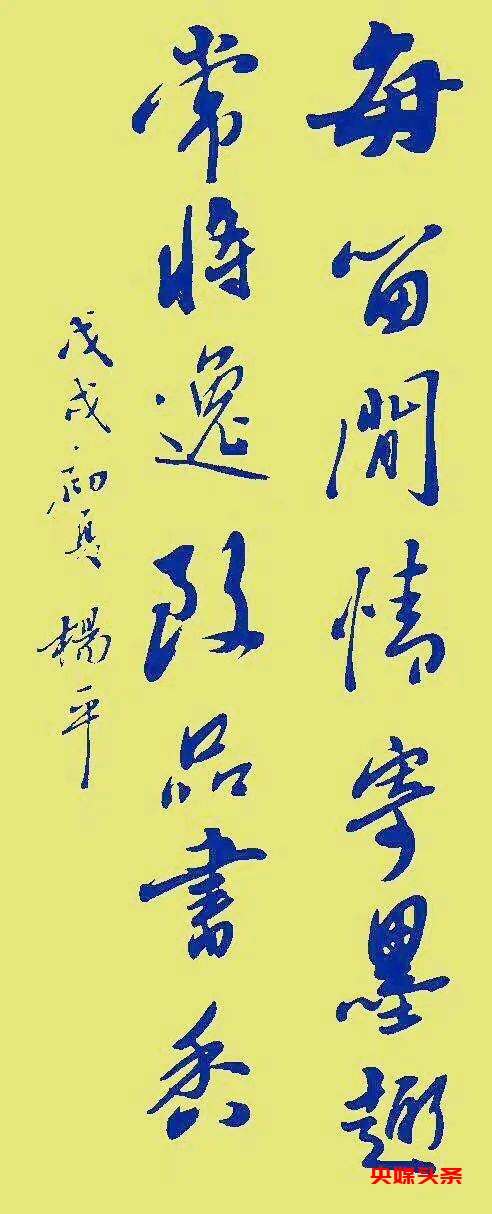 每留閒情寄墨趣
常将逸致品書香
戊戌初夏 楊平
央媒头条